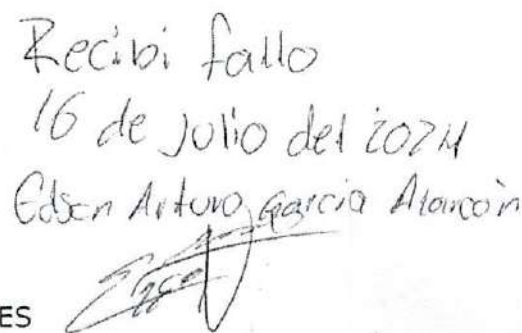 Recibi fallo
16 de julio del 2024
Edson Arturo García Alarcón
ES